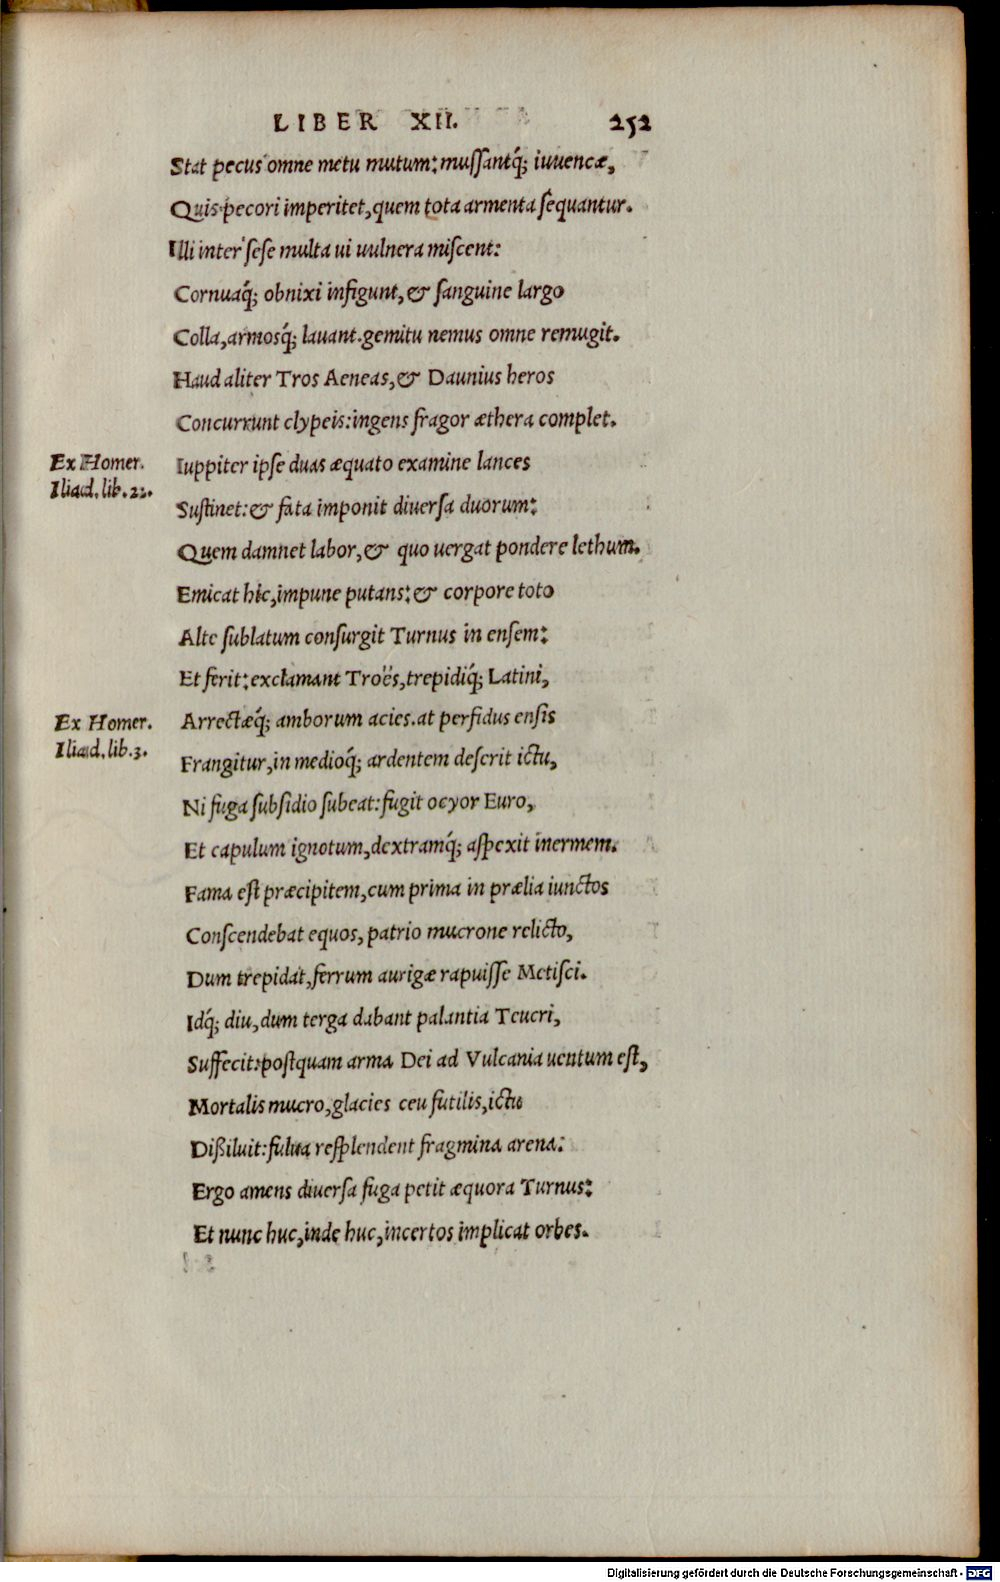 LIBER XII. 252
Stat pecus omne metu mutum: mussantq́; iuuencæ,
Quis pecori imperitet, quem tota armenta sequantur.
Illi inter sese multa ui uulnera miscent:
Cornuaq́; obnixi infigunt, & sanguine largo
Colla, armosq́; lauant. gemitu nemus omne remugit.
Haud aliter Tros Aeneas, & Daunius heros
Concurrunt clypeis: ingens fragor æthera complet.
Ex Homer.
Iliad. lib. 22.
Iuppiter ipse duas æquato examine lances
Sustinet: & fata imponit diuersa duorum:
Quem damnet labor, & quo uergat pondere lethum.
Emicat hic, impune putans: & corpore toto
Alte sublatum consurgit Turnus in ensem:
Et ferit: exclamant Troës, trepidiq́; Latini,
Ex Homer.
Iliad. lib. 3.
Arrectæq́; amborum acies. at perfidus ensis
Frangitur, in medioq́; ardentem deserit ictu,
Ni fuga subsidio subeat: fugit ocyor Euro,
Et capulum ignotum, dextramq́; aspexit inermem.
Fama est præcipitem, cum prima in prælia iunctos
Conscendebat equos, patrio mucrone relicto,
Dum trepidat, ferrum aurigæ rapuisse Metisci.
Idq́; diu, dum terga dabant palantia Teucri,
Suffecit: postquam arma Dei ad Vulcania uentum est,
Mortalis mucro, glacies ceu futilis, ictu
Dißiluit: fulua resplendent fragmina arena:
Ergo amens diuersa fuga petit æquora Turnus:
Et nunc huc, inde huc, incertos implicat orbes.
Digitalisierung gefördert durch die Deutsche Forschungsgemeinschaft - DFG